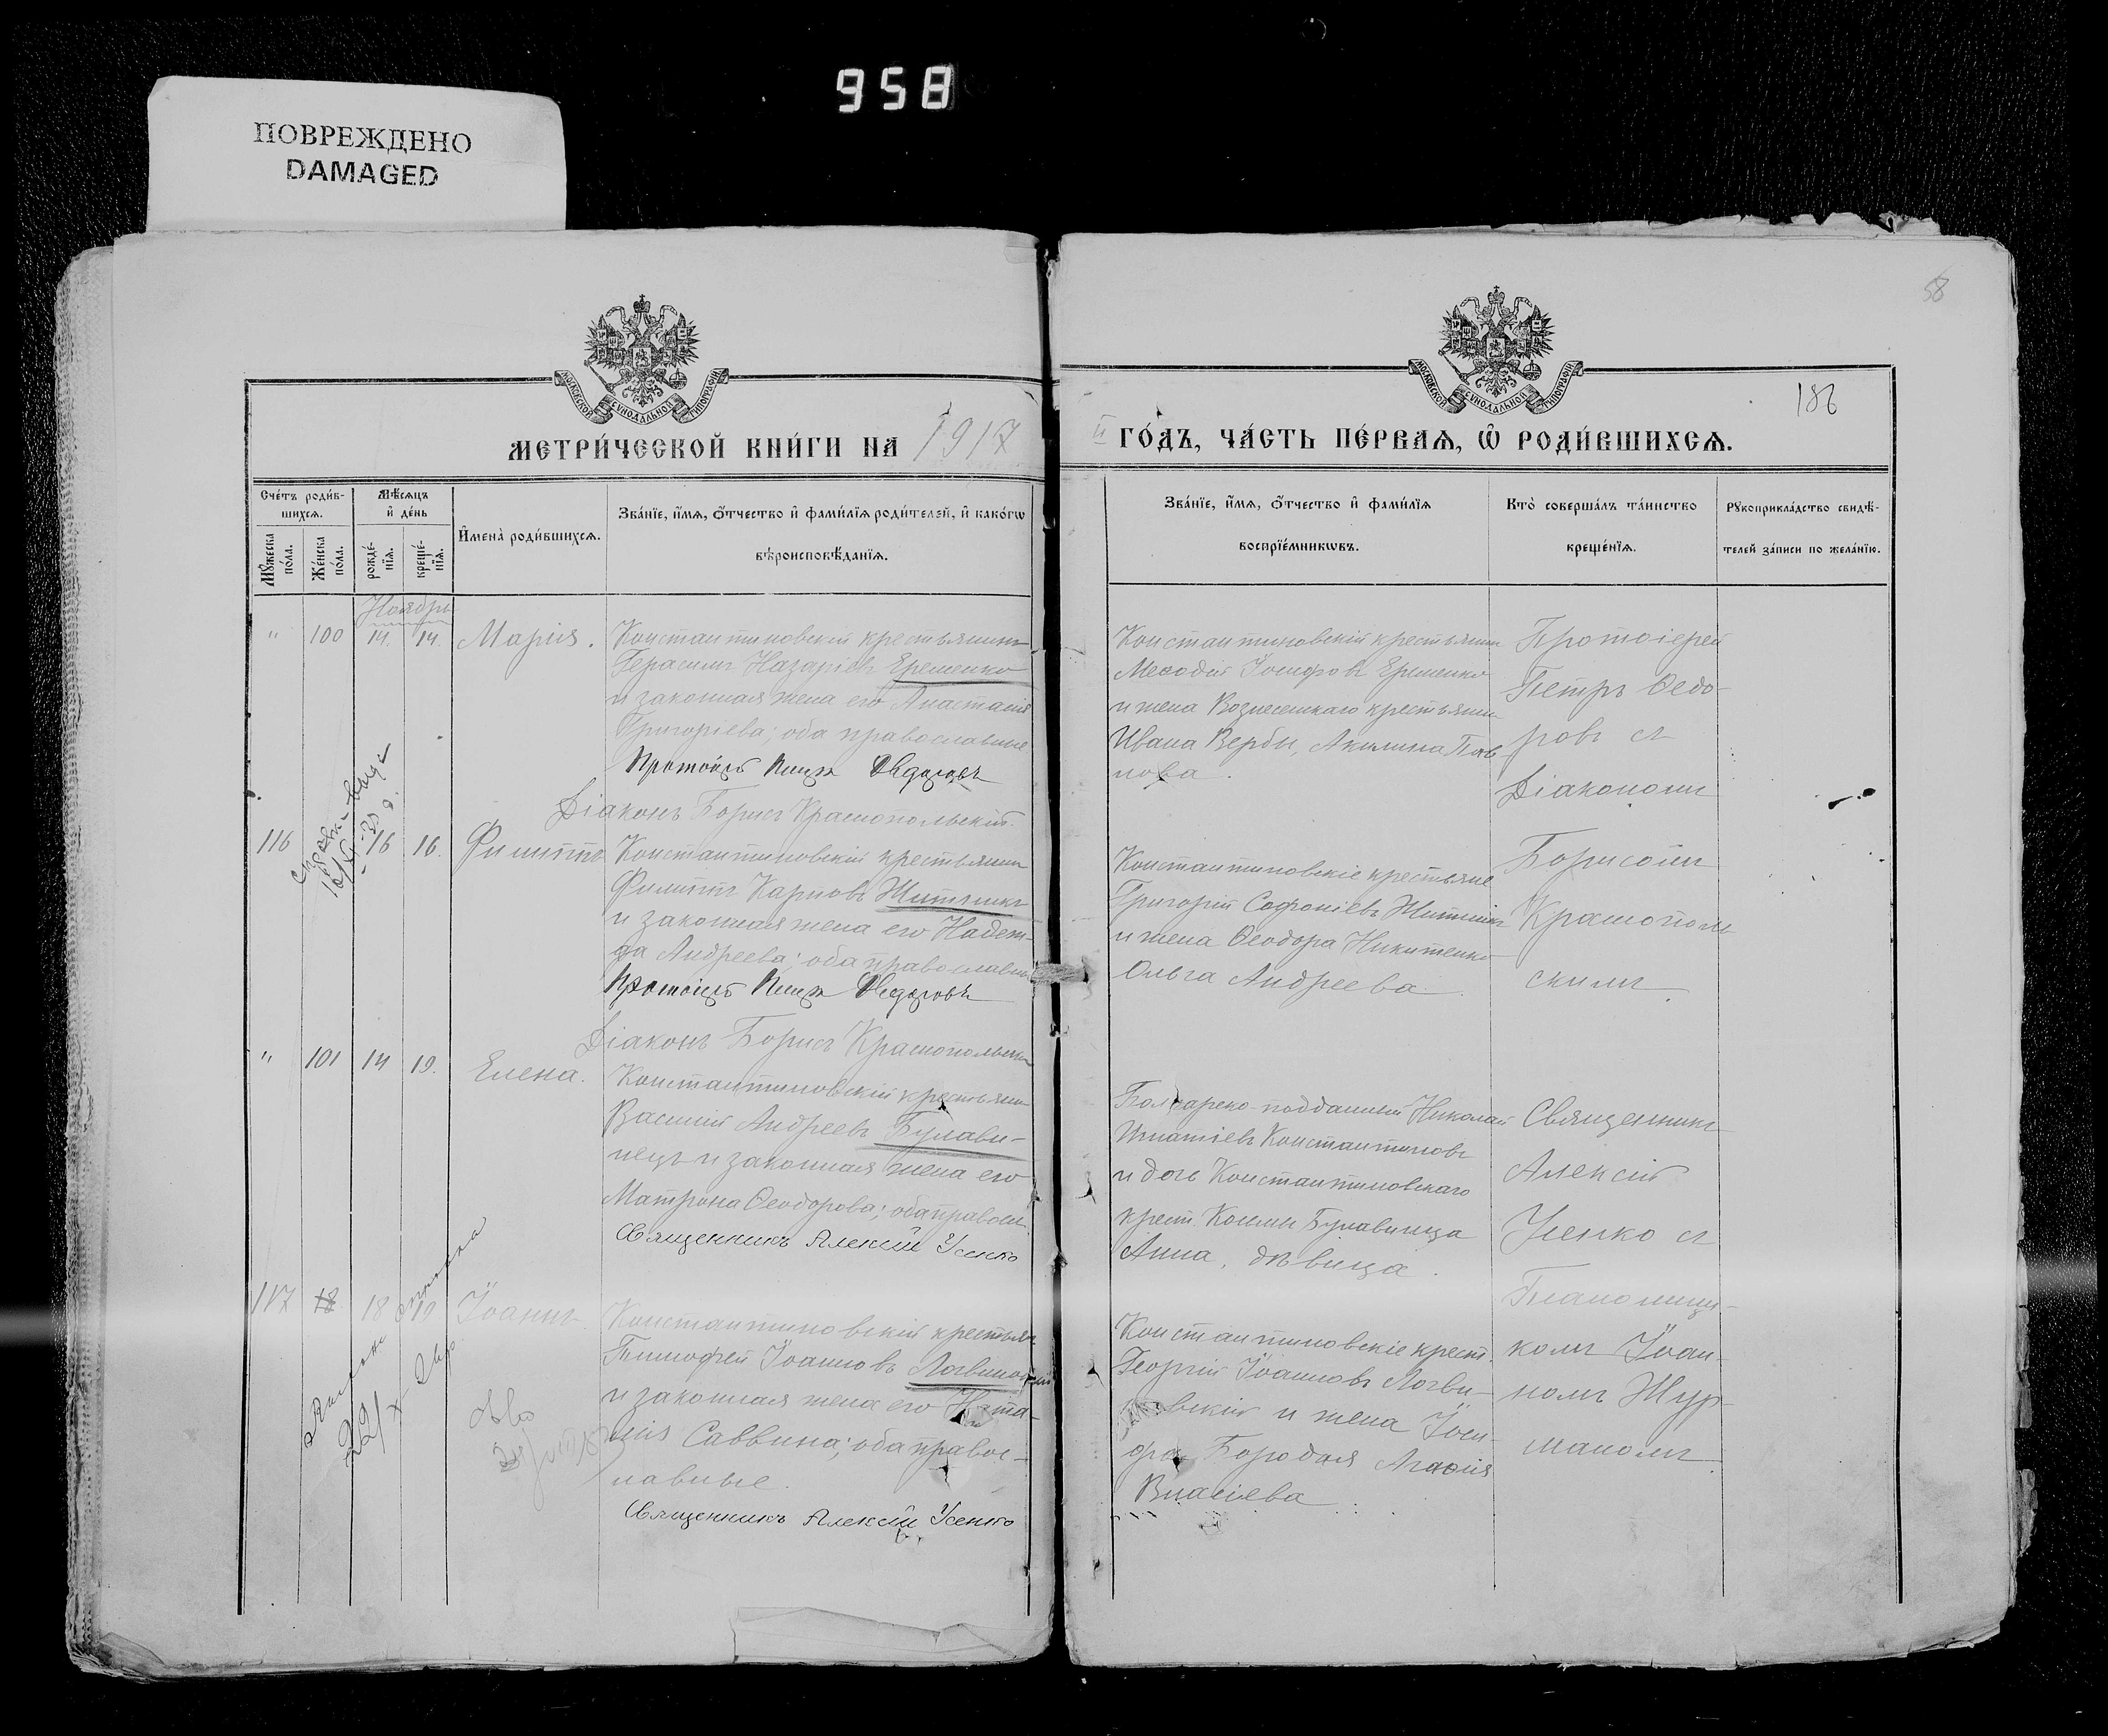 958
ПОВРЕЖДЕНО
DAMAGED
58
186
МОСКОВСКОЙ СѴНОДАЛЬНОЙ ТИПОГРАФІИ
МОСКОВСКОЙ СѴНОДАЛЬНОЙ ТИПОГРАФІИ
МЕТРИ́ЧЕСКОЙ КНИ́ГИ НА 1917
ГО́ДЪ, ЧА́СТЬ ПЕ́РВАѦ, Ѽ РОДИ́ВШИХСѦ.
Сче́тъ роди́в-
шихсѧ.
Мꙋ́жеска по́ла.
Же́нска по́ла.
Мѣ́сѧцъ
и҆ де́нь
рожде́-
нїѧ.
креще́-
нїѧ.
И҆мена̀ роди́вшихсѧ.
Зва́нїе, и҆́мѧ, ѻ҆́тчество и҆ фами́лїѧ роди́телей, и҆ како́гѡ
вѣроисповѣ́данїѧ.
Зва́нїе, и҆́мѧ, ѻ҆́тчество и҆ фами́лїѧ
воспрїе́мникѡвъ.
Кто̀ соверша́лъ та́инство
креще́нїѧ.
Рꙋкоприкла́дство свидѣ́-
телей за́писи по жела́нїю.
Ноябрь
" 100 14. 14. Марія.
Константиновскій крестьянинъ
Герасимъ Назаріевъ Еременко
и законная жена его Анастасія
Григоріева; оба православные
Протоіерей Петръ Ѳедоровъ
Діаконъ Борисъ Краснопольскій.
Константиновскій крестьянинъ
Меѳодій Іосифовъ Еременко
и жена Вознесенскаго крестьянина
Ивана Вербы, Акилина Пав-
лова.
Протоіерей
Петръ Ѳедо-
ровъ съ
Діакономъ
116 16 16. Филиппъ
Константиновскій крестьянинъ
Филиппъ Карповъ Житникъ
и законная жена его Надеж-
да Андреева; оба православны
Протоіерей Петръ Ѳедоровъ
Діаконъ Борисъ Краснопольскій
Константиновскіе крестьяне
Григорій Софоніевъ Житникъ
и жена Ѳеодора Никитенко
Ольга Андреева.
Борисомъ
Краснополь
скимъ.
" 101 14 19. Елена.
Константиновскій крестьянин
Василій Андреевъ Булави-
нецъ и законная жена его
Матрона Ѳеодорова; оба правосл.
Священникъ Алексій Усенко
Болгарско-подданный Николай
Игнатіевъ Константиновъ
и дочь Константиновскаго
крест. Космы Булавинца
Анна, дѣвица.
Священникъ
Алексій
Усенко съ
117 18 18 19 Іоаннъ.
Константиновскій крестьян
Тимофей Іоанновъ Логвиновскій
и законная жена его Ната-
лія Саввина; оба правос-
лавные.
Священникъ Алексій Усенко
Константиновскіе крест.
Георгій Іоанновъ Логви-
новскій и жена Іоси-
фа Бородая Агаѳія
Власіева
Псаломщи-
комъ Іоан-
номъ Жур-
маномъ.